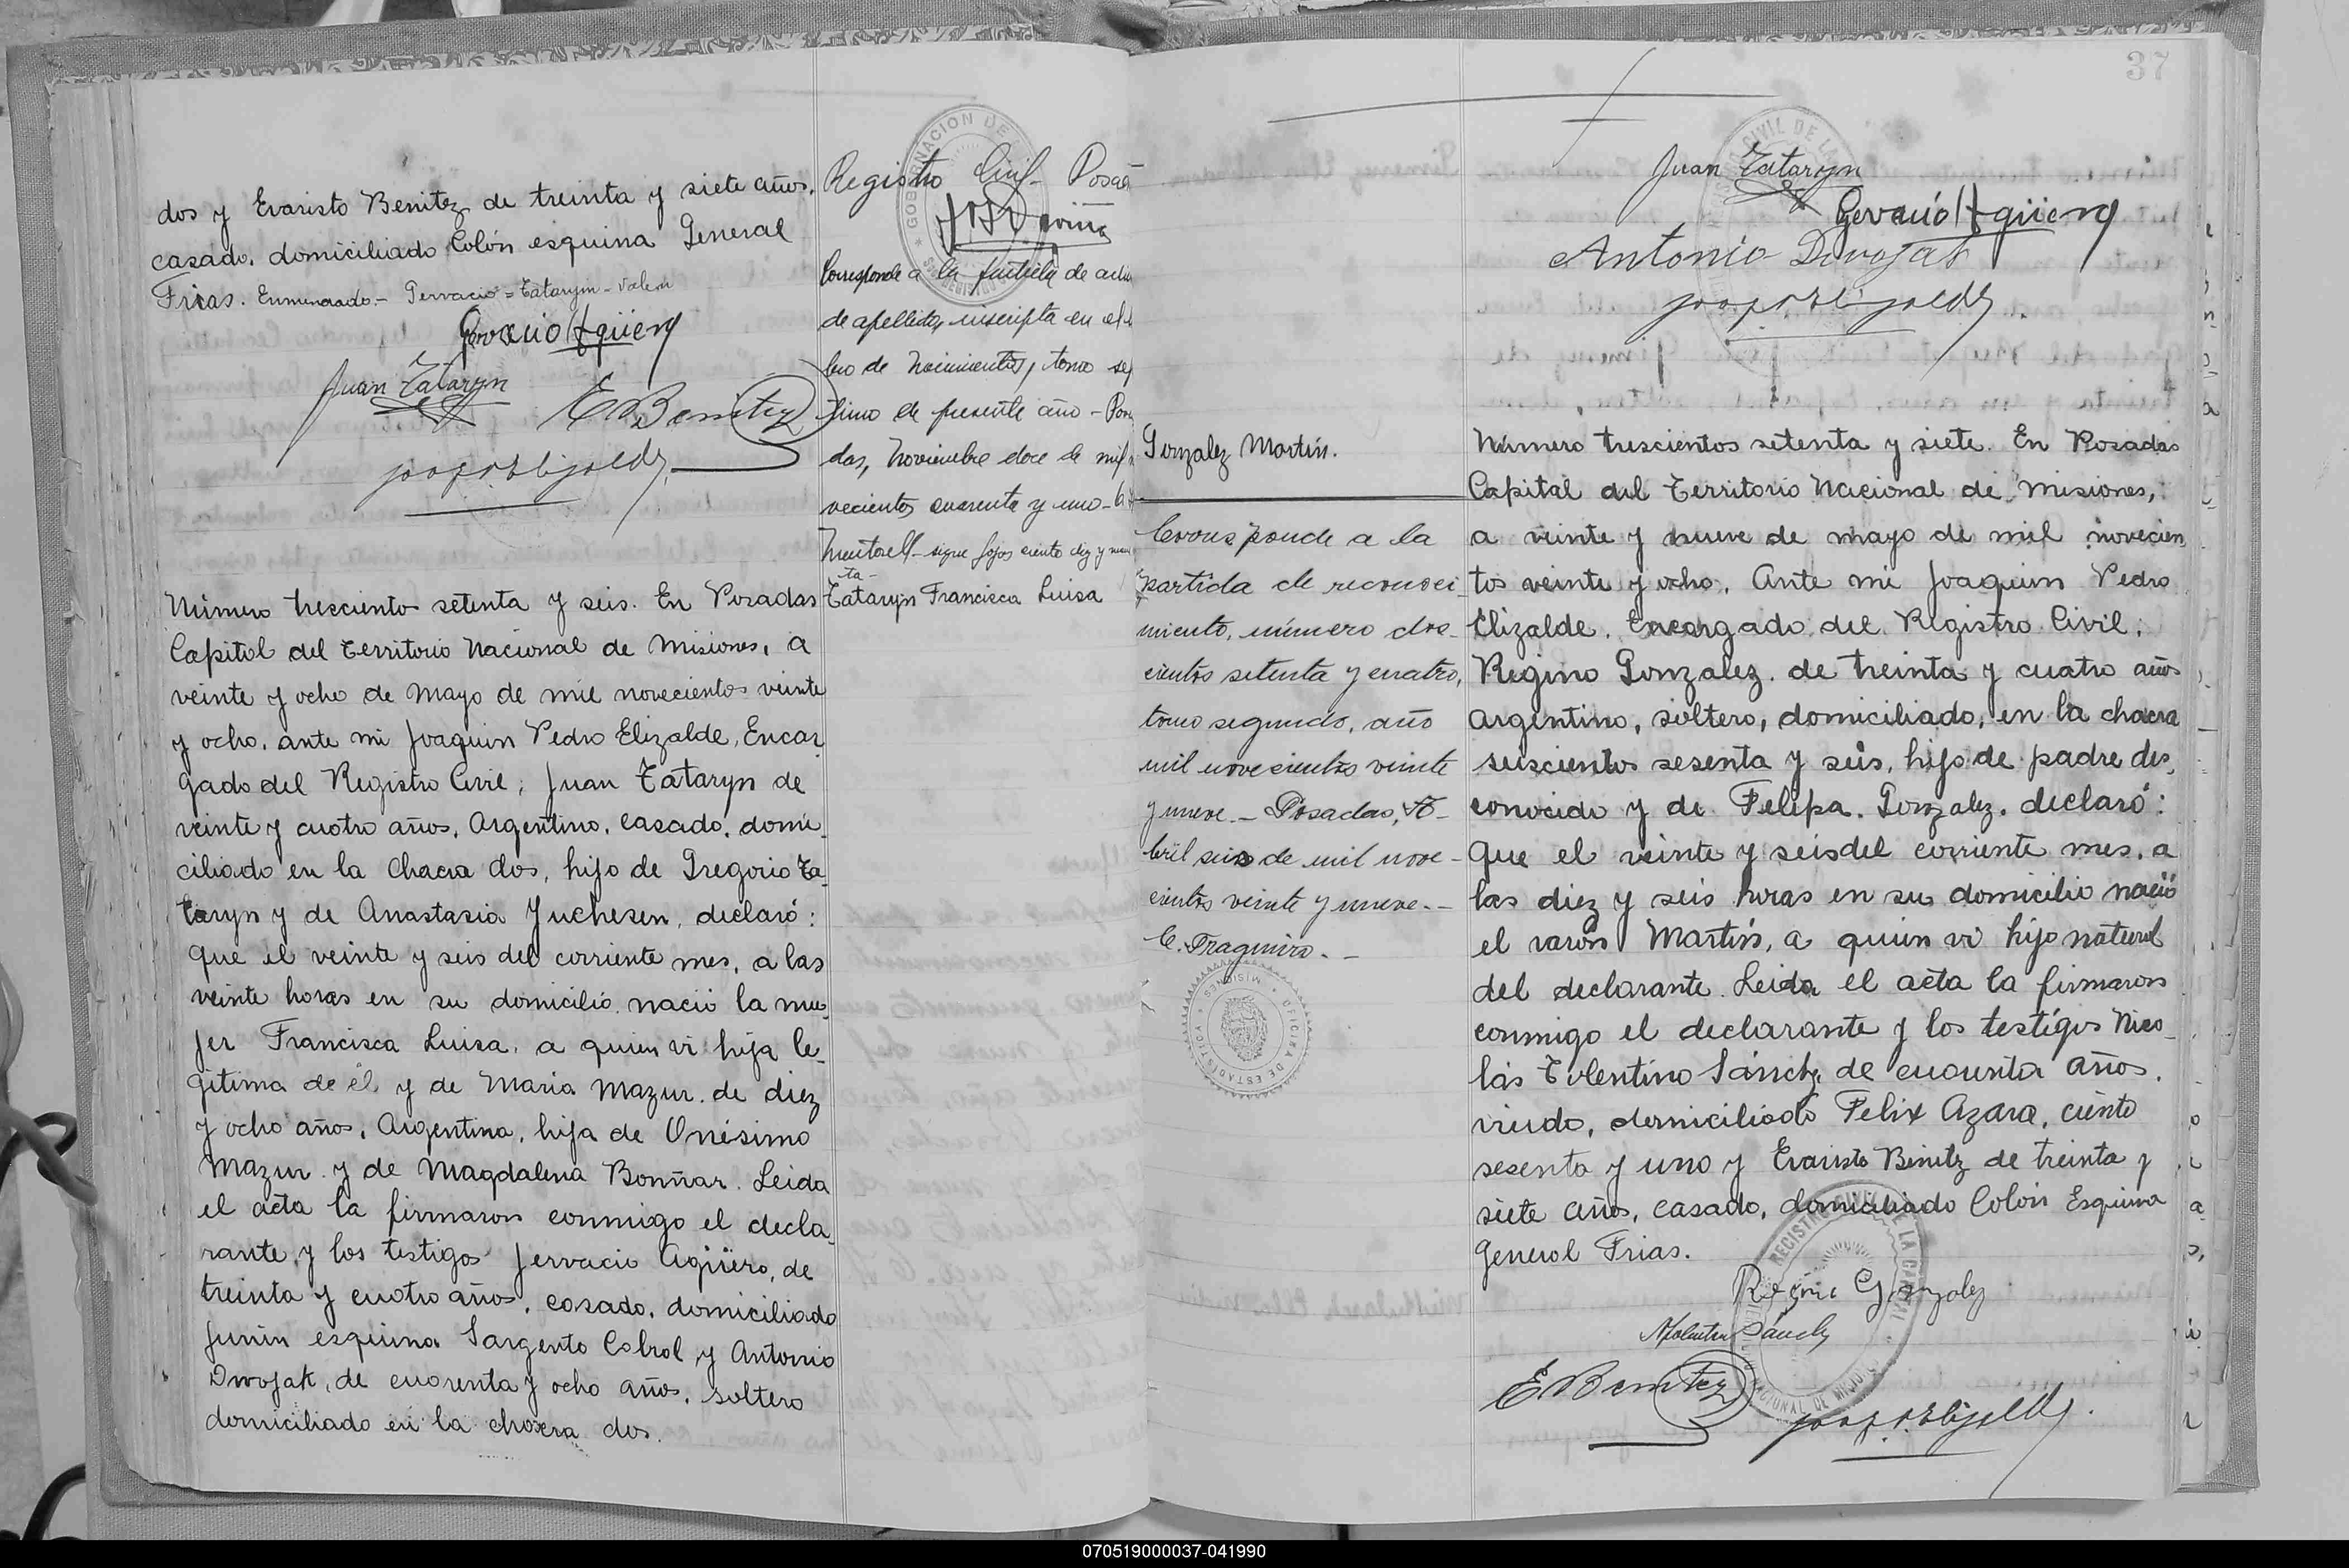 dos y Evaristo Benitez de treinta y siete años.
casado. domiciliado Colón esquina General
Frias. Enmendado.- Gervacio = Tataryn - Valen
Gervacio Agüero
Juan Tataryn
E Benitez
Número trescientos setenta y seis. En Posadas
Capital del Territorio Nacional de Misiones, a
veinte y ocho de Mayo de mil novecientos veinte
y ocho. ante mi Joaquin Pedro Elizalde, Encar
gado del Registro Civil; Juan Tataryn de
veinte y cuatro años, Argentino. casado. domi_
ciliado en la Chacra dos, hijo de Gregorio Ta_
taryn y de Anastasia Juchesen, declaró:
que el veinte y seis del corriente mes, a las
veinte horas en su domicilio nació la mu_
jer Francisca Luisa. a quien vi hija le_
gitima de él y de Maria Mazur. de diez
y ocho años, Argentina, hija de Onésimo
Mazur y de Magdalena Bonñar. Leida
el acta la firmaron conmigo el decla_
rante y los testigos Jervacio Agüero, de
treinta y cuatro años, casado, domiciliado
Junin esquina Sargento Cabral y Antonio
Dwojak, de cuarenta y ocho años. soltero
domiciliado en la chacra dos.
GOBERNACION DE
Registro Civil - Posad
Corresponde a la partida de
de apellidos inscripta en el
bro de Nacimientos, tomo sep
timo de presente año - Posa
das, Noviembre doce de mil
vecientos cuarenta y uno -
sigue fojas ciento diez y
ta-
Tataryn Francisca Luisa
37
CIVIL DE LA
Juan Tataryn
Gervacio Agüero
Antonio Dwojak
Gonzalez Martin.
Corresponde a la
partida de reconoci_
miento, número dos_
cientos setenta y cuatro,
tomo segundo, año
mil novecientos veinte
y nueve. - Posadas, A-
bril seis de mil nove-
cientos veinte y nueve. -
C. Fragueiro. -
OFICINA DE ESTADISTICA * MISIONES
Número trescientos setenta y siete. En Posadas
Capital del Territorio Nacional de Misiones,
a veinte y nueve de mayo de mil novecien
tos veinte y ocho. Ante mi Joaquin Pedro
Elizalde. Encargado del Registro Civil;
Regino Gonzalez. de treinta y cuatro años
argentino, soltero, domiciliado, en la chacra
seiscientos sesenta y seis, hijo de padre des_
conocido y de Felipa. Gonzalez. declaró:
que el veinte y seis del corriente mes. a
las diez y seis horas en su domicilio nació
el varón Martin, a quien vi hijo natural
del declarante. Leida el acta la firmaron
conmigo el declarante y los testigos Nico_
lás Tolentino Sánchez de cuarenta años.
viudo, domiciliado Felix Azara, ciento
sesenta y uno y Evaristo Benitez de treinta y
siete años, casado, domiciliado Colón Esquina
General Frias.
REGISTRO CIVIL DE LA CAPITAL
Regino Gonzalez
Sánchez
E Benitez
070519000037-041990